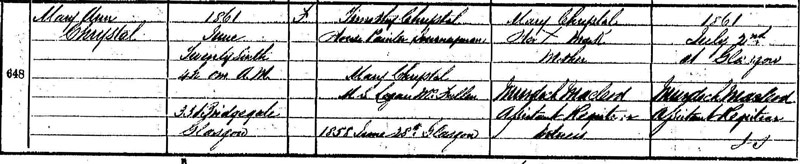 648
Mary Ann
Chrystal
1861
June
Twenty Sixth
42 m A.M.
33 Bridgegate
Glasgow
F
Timothy Chrystal
House Painter Journeyman
Mary Chrystal
M.S. Logan
1858 June 28th Glasgow
Mary Chrystal
Her X Mark
Mother
Murdoch Macleod
Assistant Registrar
Witness
1861
July 2nd
at Glasgow
Murdoch Macleod
Assistant Registrar